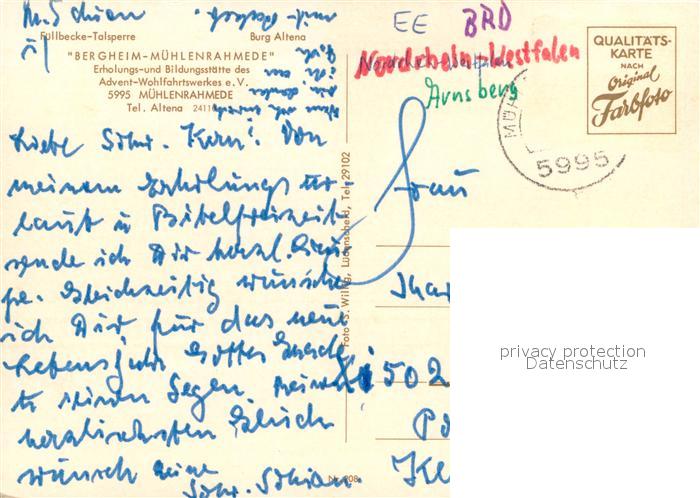 M. Schian
Füllbecke-Talsperre
Burg Altena
"BERGHEIM-MÜHLENRAHMEDE"
Erholungs- und Bildungsstätte des
Advent-Wohlfahrtswerkes e.V.
5995 MÜHLENRAHMEDE
Tel. Altena 2411
EE BRD
Nordrhein-Westfalen
Arnsberg
QUALITÄTS-
KARTE
NACH
Original
Farbfoto
5995
Liebe Schw. Von
meinem Erholungsur-
laub u Bibelfreizeit
sende ich Dir herzl. Grü-
ße. Gleichzeitig wünsche
ich Dir für das neue
Lebensjahr Gottes Gnade
u seinen Segen.
herzlichsten Glück
wünsch Deine
Schw. Schian
Frau
502
Foto: S. Willig, Lüdenscheid, Tel. 29102
privacy protection
Datenschutz